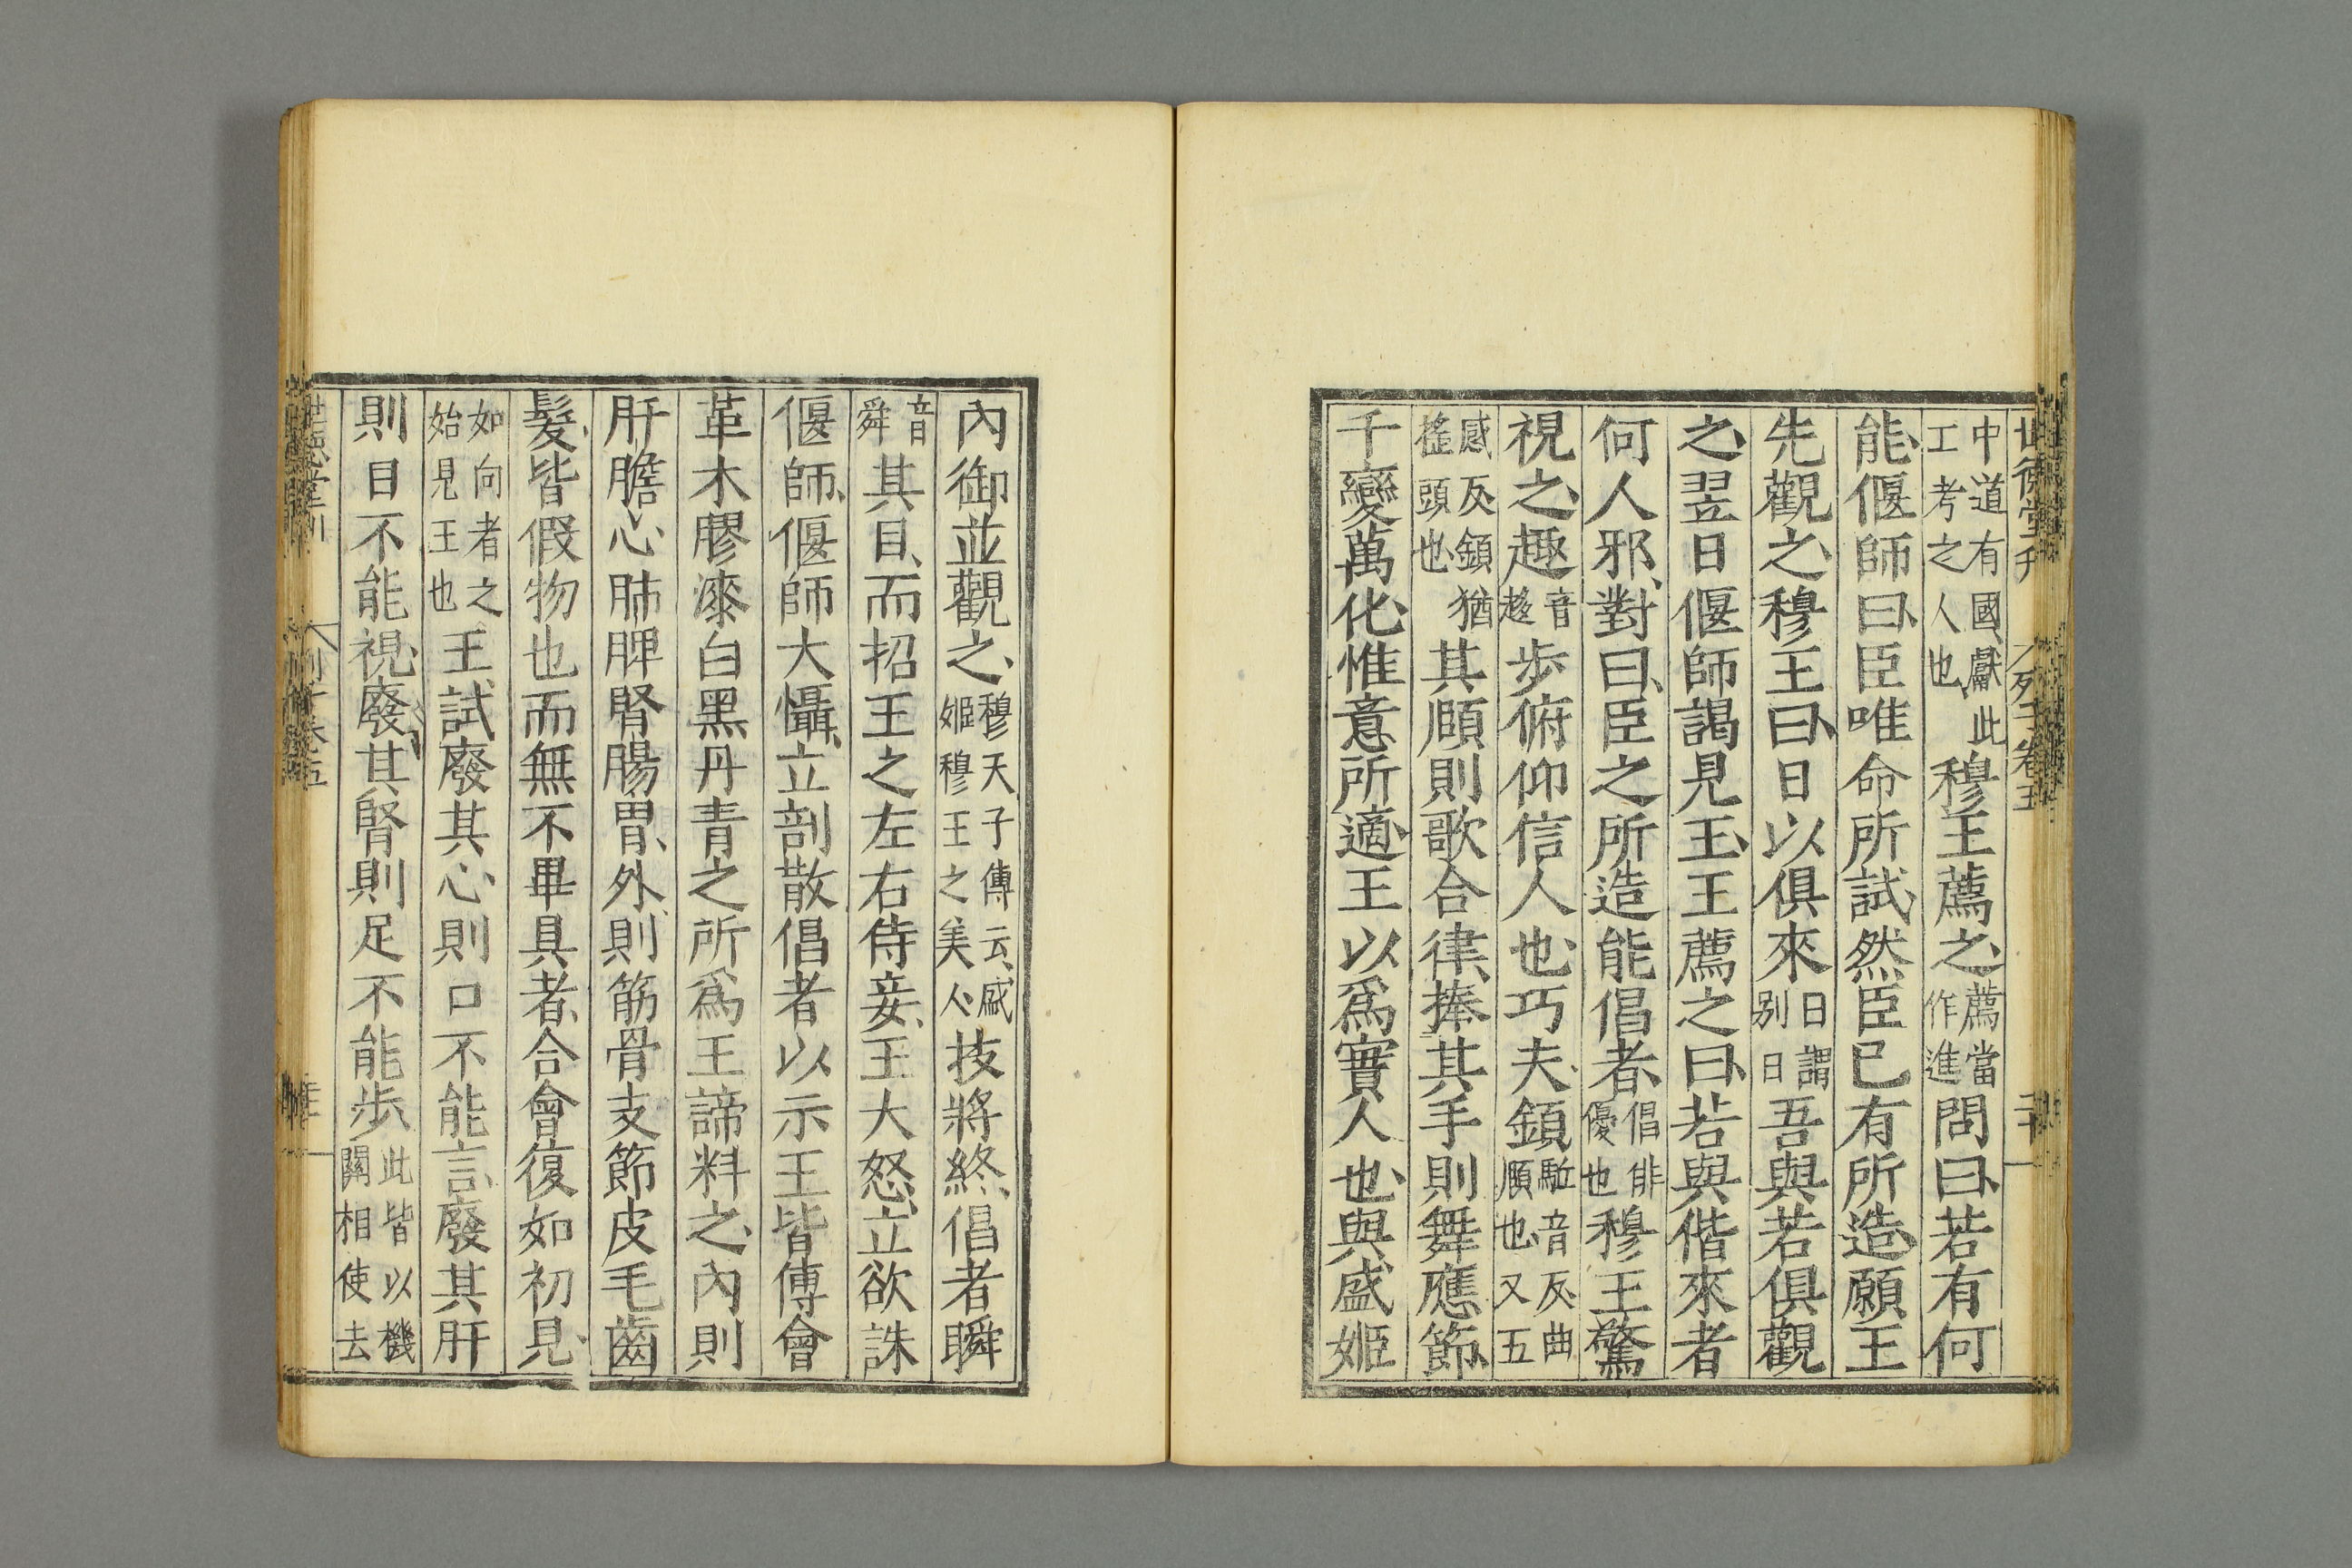 世德堂刊 列子卷五 二十
中道有國獻此工考之人也穆王薦之薦當作進問曰若有何
能偃師曰臣唯命所試然臣已有所造願王
先觀之穆王曰日以俱來日謂別日吾與若俱觀
之翌日偃師謁見王王薦之曰若與偕來者
何人邪對曰臣之所造能倡者倡俳優也穆王驚
視之趣音趨步俯仰信人也巧夫顉驅音反曲頤也又五
感反顉猶搖頭也其頤則歌合律捧其手則舞應節
千變萬化惟意所適王以爲實人也與盛姬
內御並觀之穆天子傳云盛姬穆王之美人技將終倡者瞬
音舜其目而招王之左右侍妾王大怒立欲誅
偃師偃師大懾立剖散倡者以示王皆傅會
革木膠漆白黑丹青之所爲王諦料之內則
肝膽心肺脾腎腸胃外則筋骨支節皮毛齒
髮皆假物也而無不畢具者合會復如初見
如向者之始見王也王試廢其心則口不能言廢其肝
則目不能視廢其腎則足不能步此皆以機關相使去
世德堂刊 列子卷五